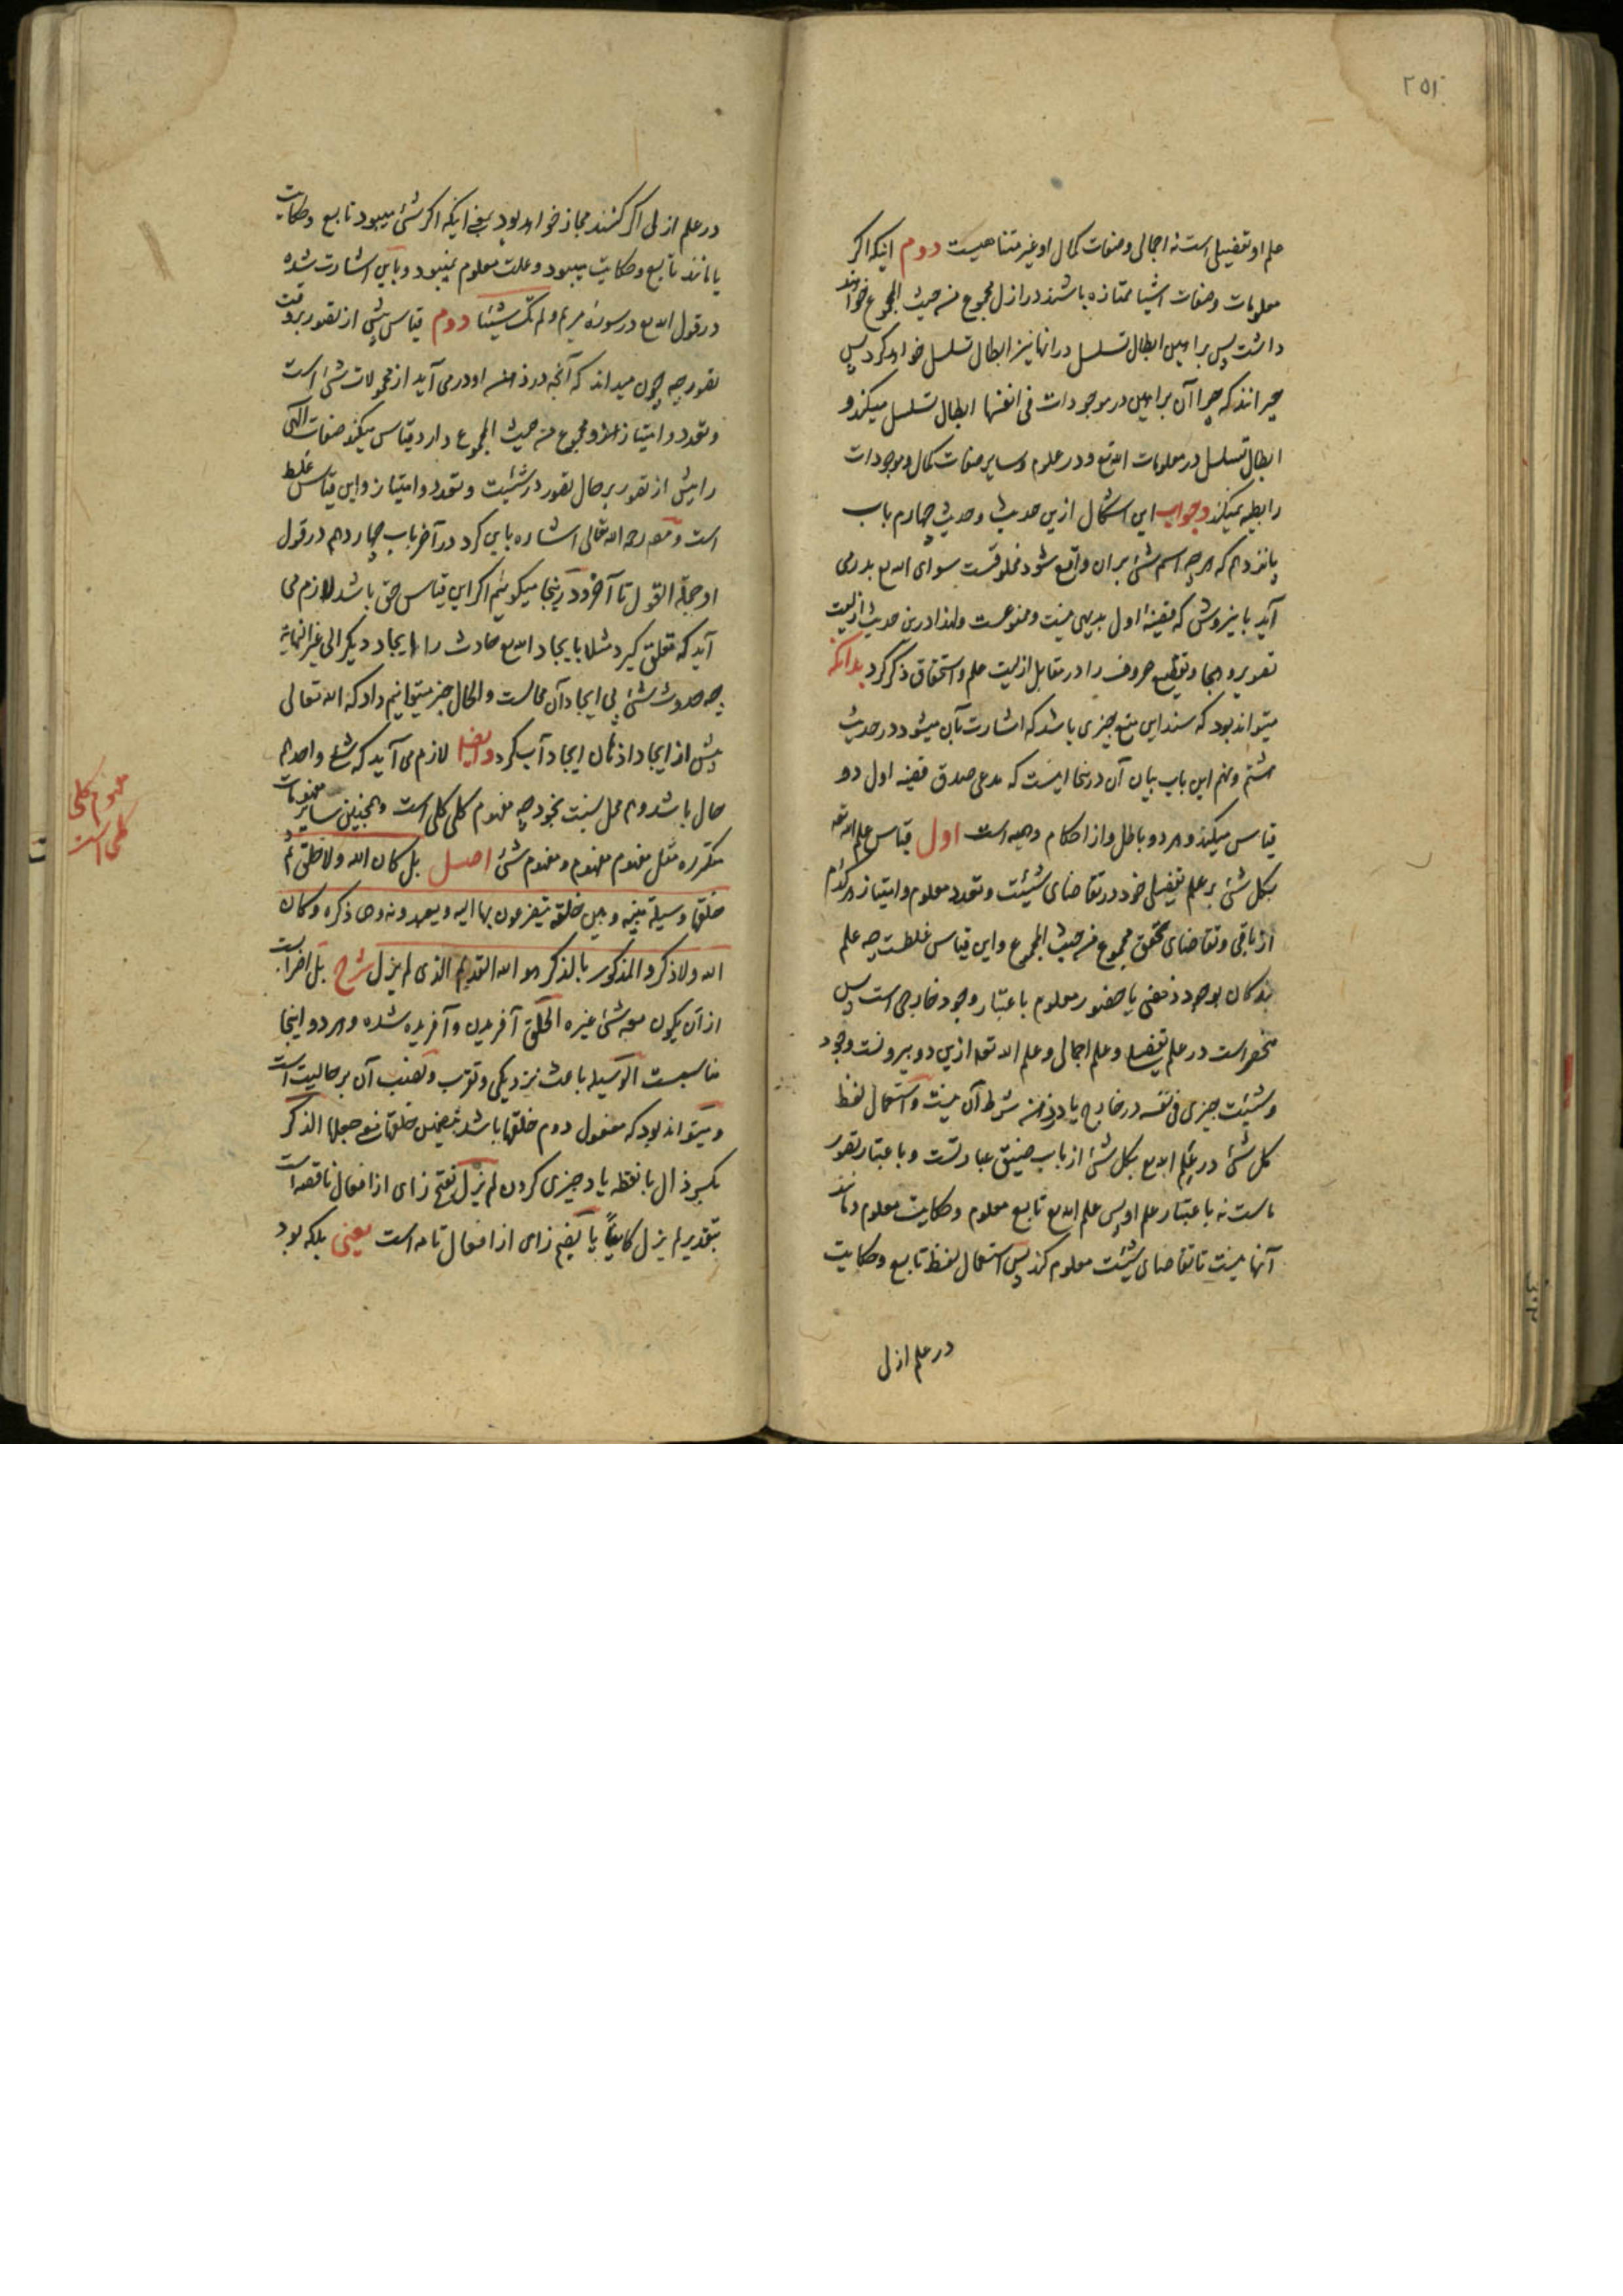 ۲۵۱
علم او تفضیلی است نه اجمالی و صفات کمال او غیر متناهیست دوم اینکه اکر
معلومات و صفات اشیا ممتازه باشند در ازل مجموع من حیث المجموع خواهند
داشت پس براهین ابطال تسلسل در انها نیز ابطال تسلسل خواهد کرد پس
حیرانند که چرا آن براهین در موجودات فی انفسها ابطال تسلسل میکند و
ابطال تسلسل در معلومات الله تع و در علوم و سایر صفات کمال و موجودات
رابطیه نمیکند و جواب این اشکال ازین حدیث و حدیث چهارم باب
پانزدهم که هر چه اسم شئ بران واقع شود مخلوقست سوای الله تع بدر می
آید باینروش که مقدمه اول بدیهی نیست و ممنوعست و لهذا درین حدیث ازلیت
تصویر و هجا و تقطیع حروف را در مقابل ازلیت علم و استحقاق ذکر کرد بدانکه
میتواند بود که سند این منع چیزی باشد که اشارت بآن میشود در حدیث
هشتم و نهم این باب بیان آن در ینجا اینست که مدعی صدق مقدمه اول دو
قیاس میکند و هر دو باطل و از احکام وهمیه است اول قیاس علم الله تعه
بکل شئ بر علم تفضیلی خود در تقاضای شیئیت و تعدد معلوم و امتیاز هر کدام
از باقی و تقاضای تحقق مجموع من حیث المجموع و این قیاس غلطست چه علم
بندکان بوجود ذهنی یا حضور معلوم باعتبار وجود خارجی است پس
منحصر است در علم تفضیلی و علم اجمالی و علم الله تعه ازین دو بیرونست وجود
و شیئیت چیزی فی نفسه در خارج یا در ذهن شرط آن نیست و استعمال لفظ
کل شئ در علم الله تع بکل شئ از باب ضیق عبارتست و باعتبار تصور
ماست نه باعتبار علم او پس علم الله تع تابع معلوم و حکایت معلوم و مانند
آنها نیست تا تقاضای شیئیت معلوم کند پس استعمال لفظ تابع و حکایت
در علم ازل
در علم ازلی اکر کنند مجاز خواهد بود بمعنی اینکه اکر شئ میبود تابع و حکایت
یا مانند تابع و حکایت میبود و علت معلوم نمیبود و باین اشارت شده
در قول الله تع در سوره مریم و لم تک شیئا دوم قیاس پیش از تصور بر وقت
تصور چه چون میداند که آنچه در ذهن او در می آید از محمولات شئ است
و تعدد و امتیاز و مجموع من حیث المجموع دارد قیاس میکند صفات الهی
را پیش از تصور بر حال تصور در شیئیت و تعدد و امتیاز و این قیاس غلط
است و مصه رحمه الله تعالی اشاره باین کرد در آخر باب چهاردهم در قول
او جملة القول تا آخر و در ینجا میکوئیم اکر این قیاس حق باشد لازم می
آید که تعلق کیرد مثلا با یجاد الله تع حادث را ایجاد دیکر الی غیر النهایة
چه حدوث شئ بی ایجاد آن محالست و الحال خبر میتوانیم داد که الله تعالی
پیش از ایجاد اذهان ایجاد آب کرد و ایضا لازم می آید که شئ واحد هم
حال باشد و هم محل نسبت بخود چه مفهوم کلی کلی است و همچنین سایر مفهومات
متکرره مثل مفهوم مفهوم و مفهوم شئ اصل بل کان الله و لا خلق ثم
خلقها وسیلة بینه و بین خلقه یتضرعون بها الیه و یعبدونه و هی ذکره و کان
الله و لا ذکر و المذکور بالذکر هو الله القدیم الذی لم یزل شرح بل اضرابست
از آن یکون معه شئ غیره الخلق آفریدن و آفریده شده و هر دو اینجا
مناسبست الوسیله باعث نزدیکی و تقرب و نصب آن بر حالیت است
و میتواند بود که مفعول دوم خلقها باشد بتضمین خلقها معنی جعلها الذکر
بکسر ذال با نقطه یاد چیزی کردن لم یزل بفتح زای از افعال ناقصه است
بتقدیر لم یزل کاینا یا بضم زای از افعال تامه است یعنی بلکه بود
مفهوم کلی
کلی است